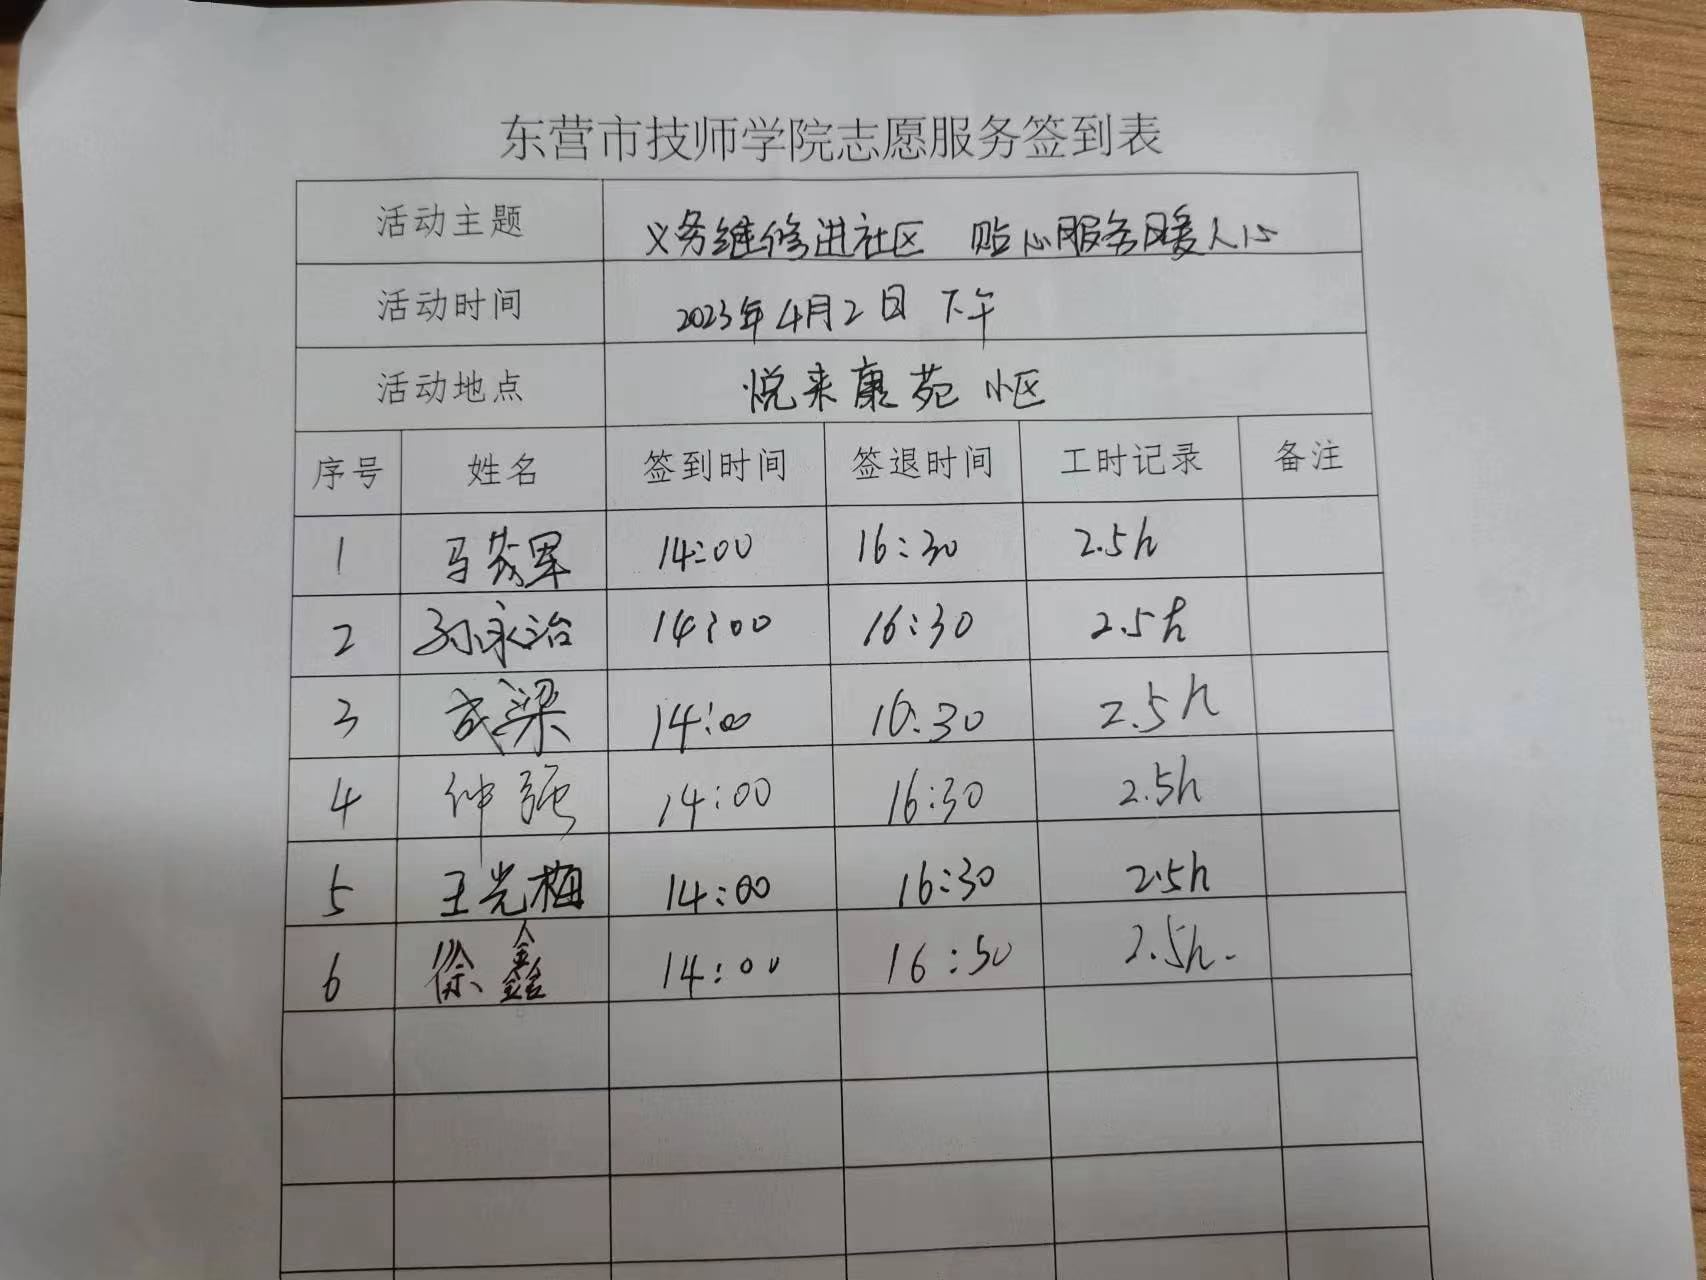 东营市技师学院志愿服务签到表
活动主题 义务维修进社区 贴心服务暖人心
活动时间 2023年4月2日 下午
活动地点 悦来康苑 小区
序号 姓名 签到时间 签退时间 工时记录 备注
1 马茂军 14:00 16:30 2.5h
2 孙永治 14:00 16:30 2.5h
3 成梁 14:00 16:30 2.5h
4 仲强 14:00 16:30 2.5h
5 王光梅 14:00 16:30 2.5h
6 徐鑫 14:00 16:30 2.5h.